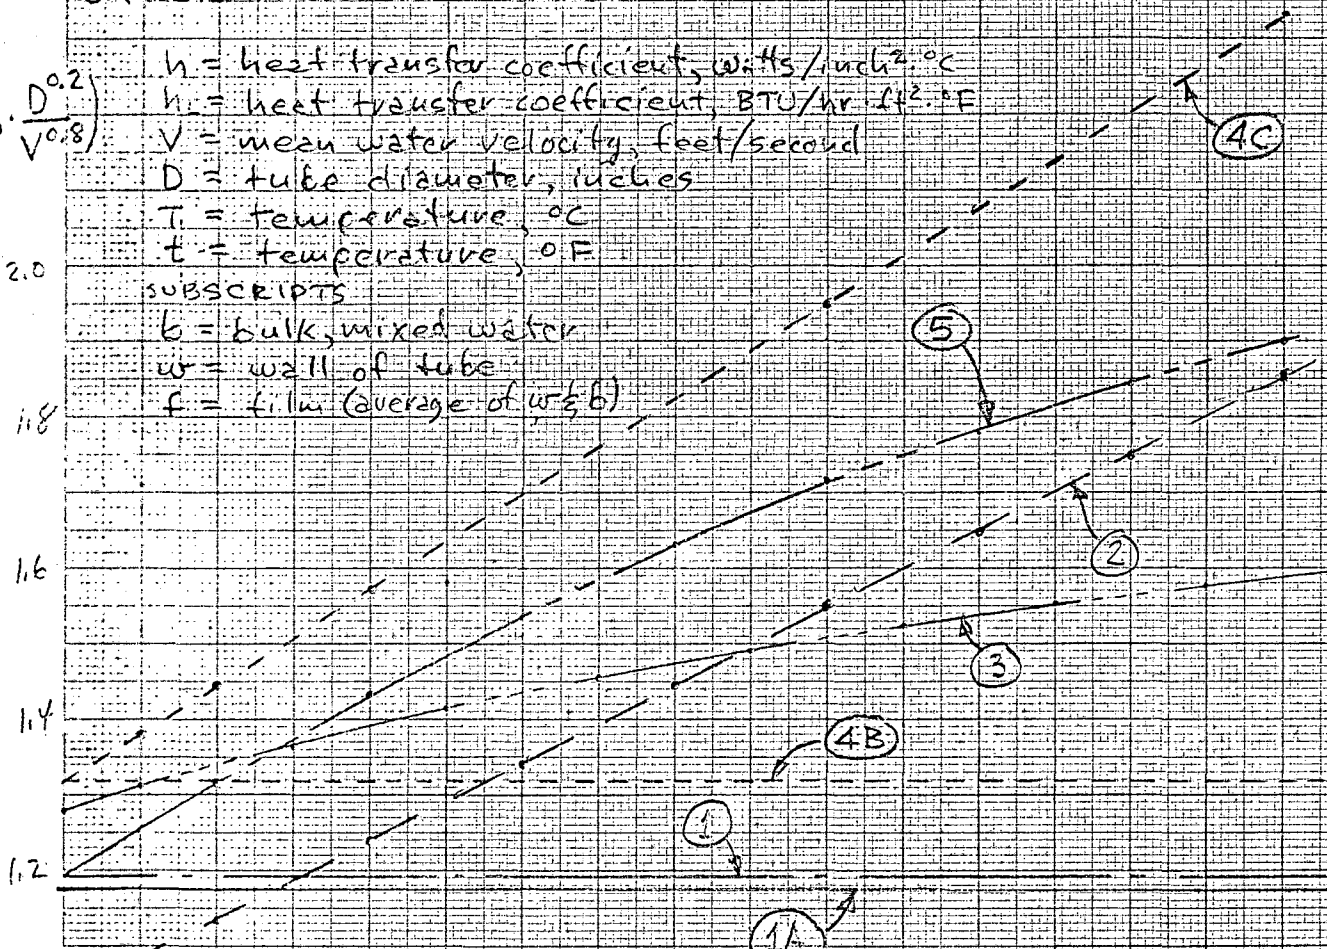 h = heat transfer coefficient, watts/inch²·°C
h₁ = heat transfer coefficient, BTU/hr·ft²·°F
V = mean water velocity, feet/second
D = tube diameter, inches
T = temperature, °C
t = temperature, °F
SUBSCRIPTS
b = bulk, mixed water
w = wall of tube
f = film (average of w & b)
· D^0.2 / V^0.8)
2.0
1.8
1.6
1.4
1.2
4C
5
2
3
4B
1
1A